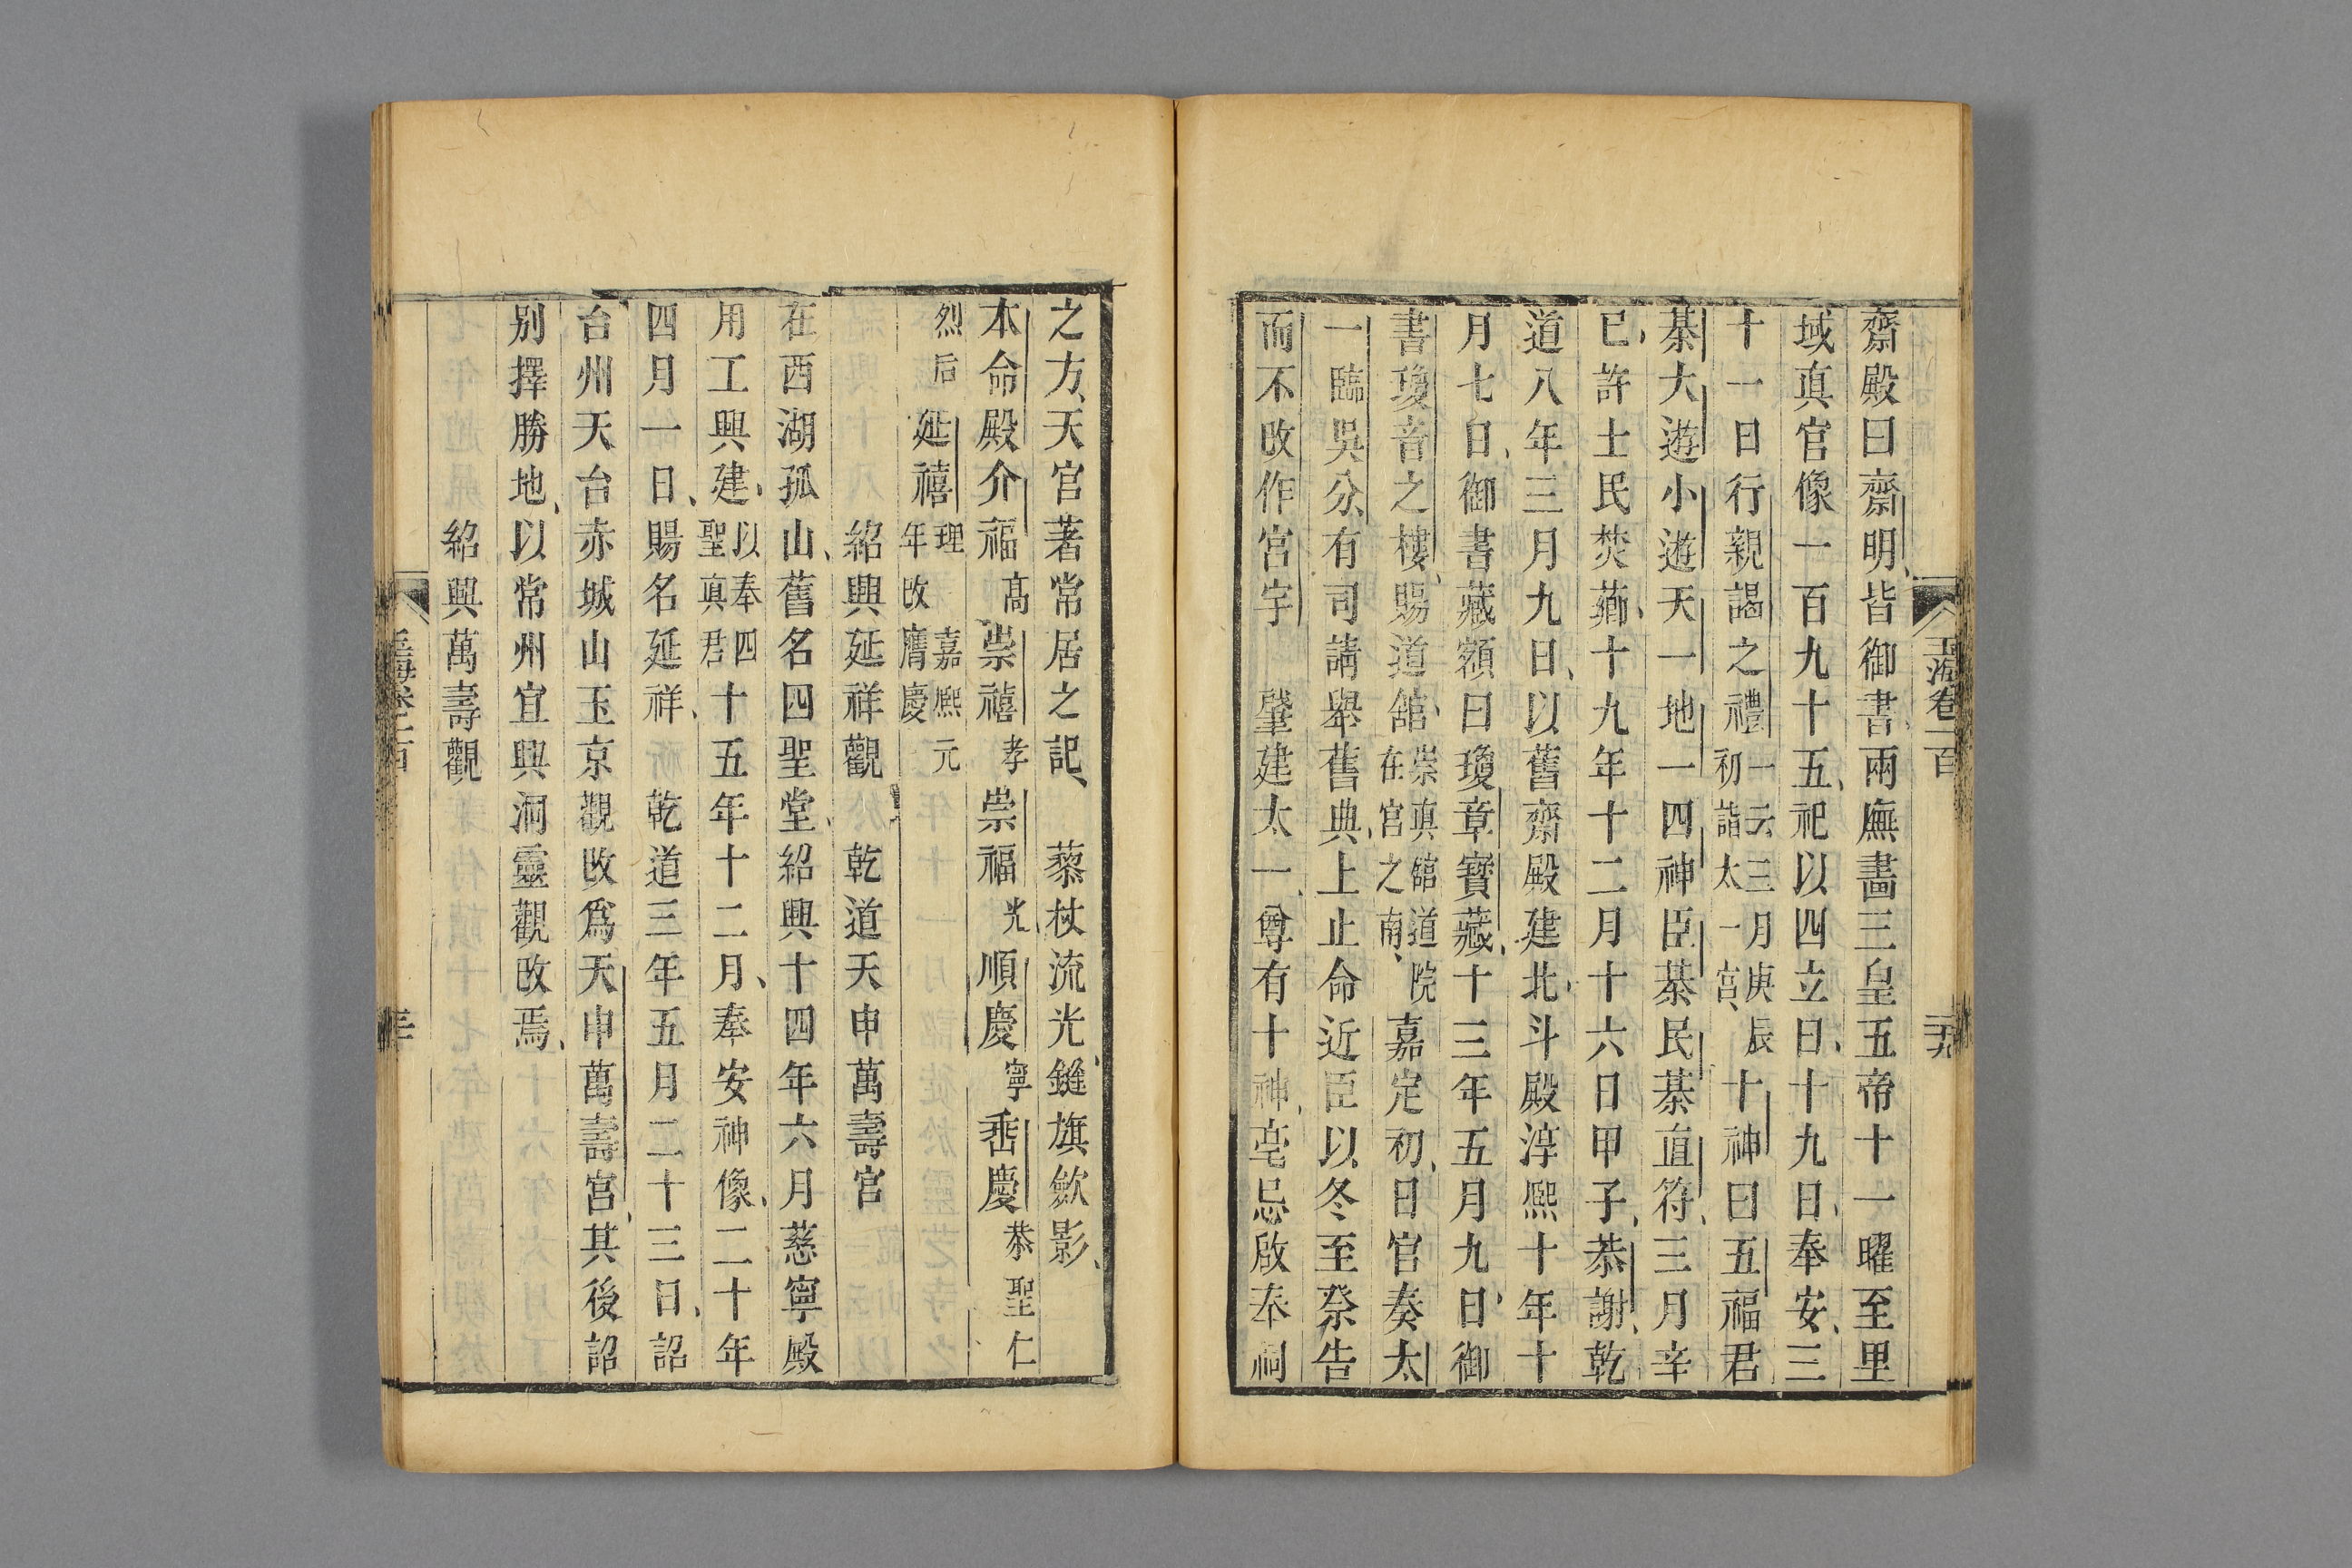 玉海卷一百
齋殿曰齋明皆御書兩廡畫三皇五帝十一曜至里
域真官像一百九十五祀以四立日十九日奉安三
十一日行親謁之禮一云三月庚辰初詣太一宮十神曰五福君
棊大遊小遊天一地一四神臣棊民棊直符三月辛
巳許士民焚薌十九年十二月十六日甲子恭謝乾
道八年三月九日以舊齋殿建北斗殿淳熙十年十
月七日御書藏額曰瓊章寶藏十三年五月九日御
書瓊音之樓賜道舘崇真舘道院在宮之南嘉定初日官奏太
一臨吳分有司請舉舊典上止命近臣以冬至祭告
而不改作宮宇 肇建太一尊有十神亳忌啟奉祠
之方天官著常居之記 藜杖流光鎚旗歛影
本命殿介福高崇禧孝崇福光順慶寧乖慶恭聖仁
烈后延禧理 嘉熙元年改膺慶
紹興延祥觀 乾道天申萬壽宮
在西湖孤山舊名四聖堂紹興十四年六月慈寧殿
用工興建以奉四聖真君十五年十二月奉安神像二十年
四月一日賜名延祥 乾道三年五月二十三日詔
台州天台赤城山玉京觀改爲天申萬壽宮其後詔
別擇勝地以常州宜興洞靈觀改焉
紹興萬壽觀
玉海卷一百